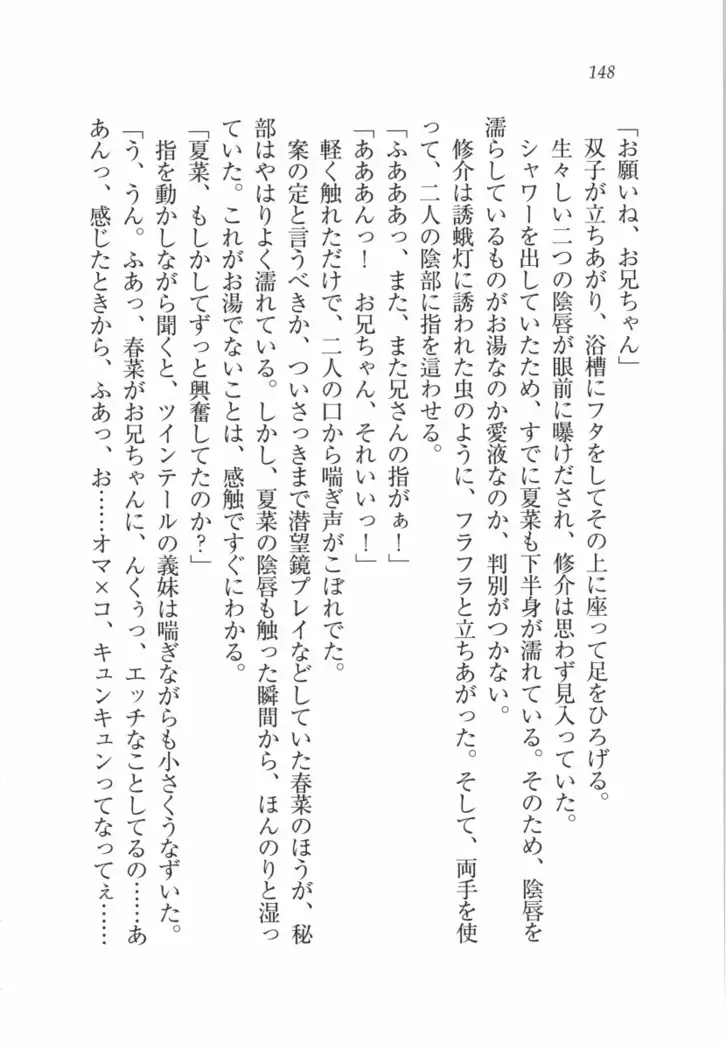 148
「お願いね、お兄ちゃん」
双子が立ちあがり、浴槽にフタをしてその上に座って足をひろげる。
生々しい二つの陰唇が眼前に曝けだされ、修介は思わず見入っていた。
シャワーを出していたため、すでに夏菜も下半身が濡れている。そのため、陰唇を
濡らしているものがお湯なのか愛液なのか、判別がつかない。
修介は誘蛾灯に誘われた虫のように、フラフラと立ちあがった。そして、両手を使
って、二人の陰部に指を這わせる。
「ふあああっ、また、また兄さんの指がぁ！」
「あああんっ！　お兄ちゃん、それいいっ！」
軽く触れただけで、二人の口から喘ぎ声がこぼれでた。
案の定と言うべきか、ついさっきまで潜望鏡プレイなどしていた春菜のほうが、秘
部はやはりよく濡れている。しかし、夏菜の陰唇も触った瞬間から、ほんのりと湿っ
ていた。これがお湯でないことは、感触ですぐにわかる。
「夏菜、もしかしてずっと興奮してたのか？」
指を動かしながら聞くと、ツインテールの義妹は喘ぎながらも小さくうなずいた。
「う、うん。ふあっ、春菜がお兄ちゃんに、んくぅっ、エッチなことしてるの……あ
あんっ、感じたときから、ふあっ、お……オマ×コ、キュンキュンってなってぇ……